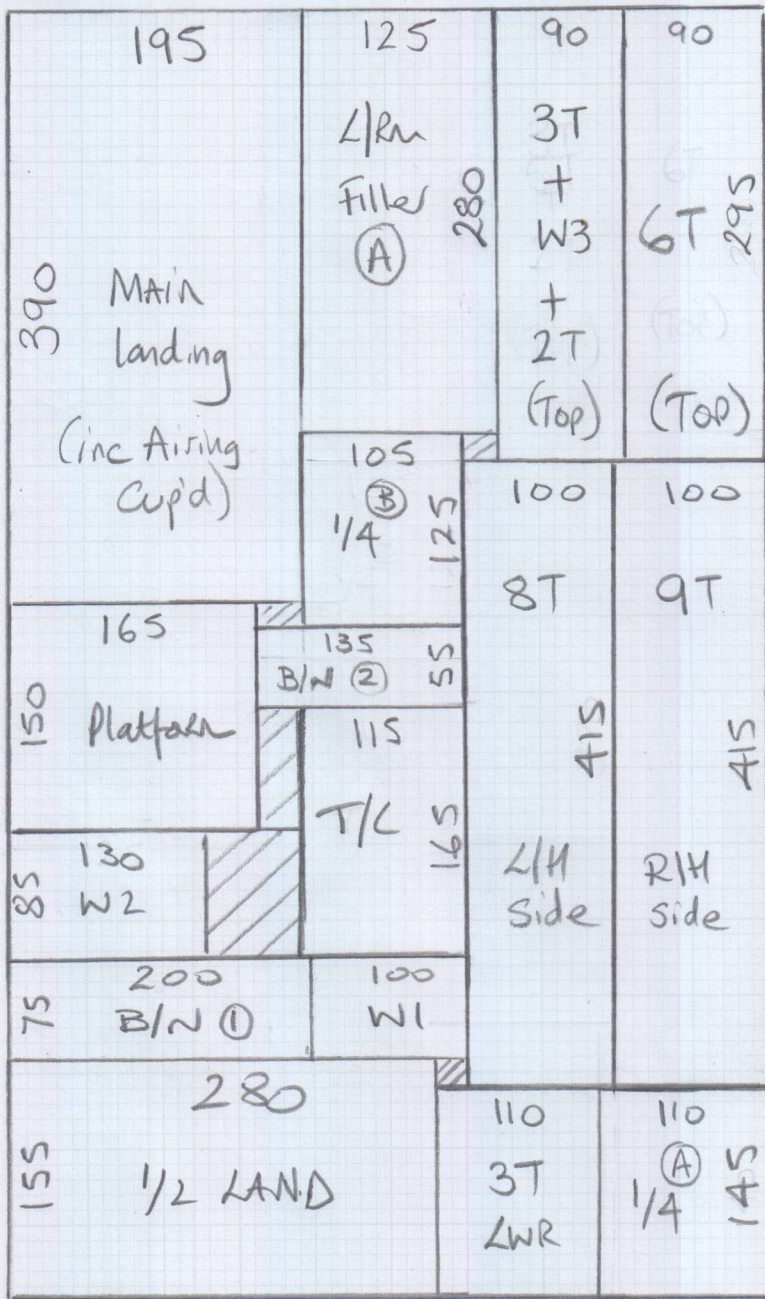 195
390
MAin
landing
(inc Airing
Cup'd)
125
L/Rm
Filler
A
280
90
3T
+
W3
+
2T
(Top)
90
6T
295
(Top)
105
B
1/4
125
100
8T
415
L/H
Side
100
9T
415
R/H
Side
165
150
Platform
135
B/N 2
55
115
T/C
165
130
85
W2
200
75
B/N 1
100
W1
280
155
1/2 LAND
110
3T
LWR
110
A
1/4
145